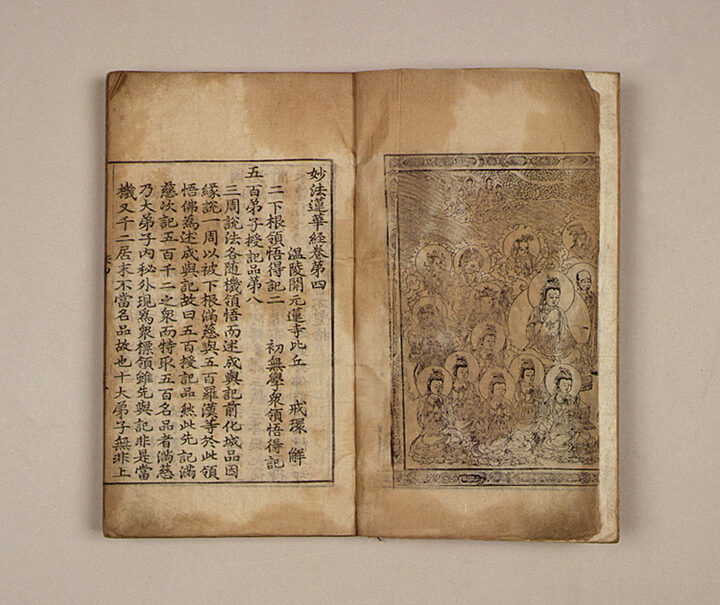 妙法蓮華經卷第四
溫陵開元蓮寺比丘 戒環 解
二下根領悟得記二 初無學衆領悟得記
五百弟子授記品第八
三周說法各隨機領悟而述成與記前化城品因
緣說一周以被下根滿慈與五百羅漢等於此領
悟佛爲述成與記故曰五百授記品然此先記滿
慈次記五百千二之衆而特取五百名品者滿慈
乃大弟子內秘外現爲衆標領雖先與記非是當
機又千二居不當名品故也十大弟子無非上